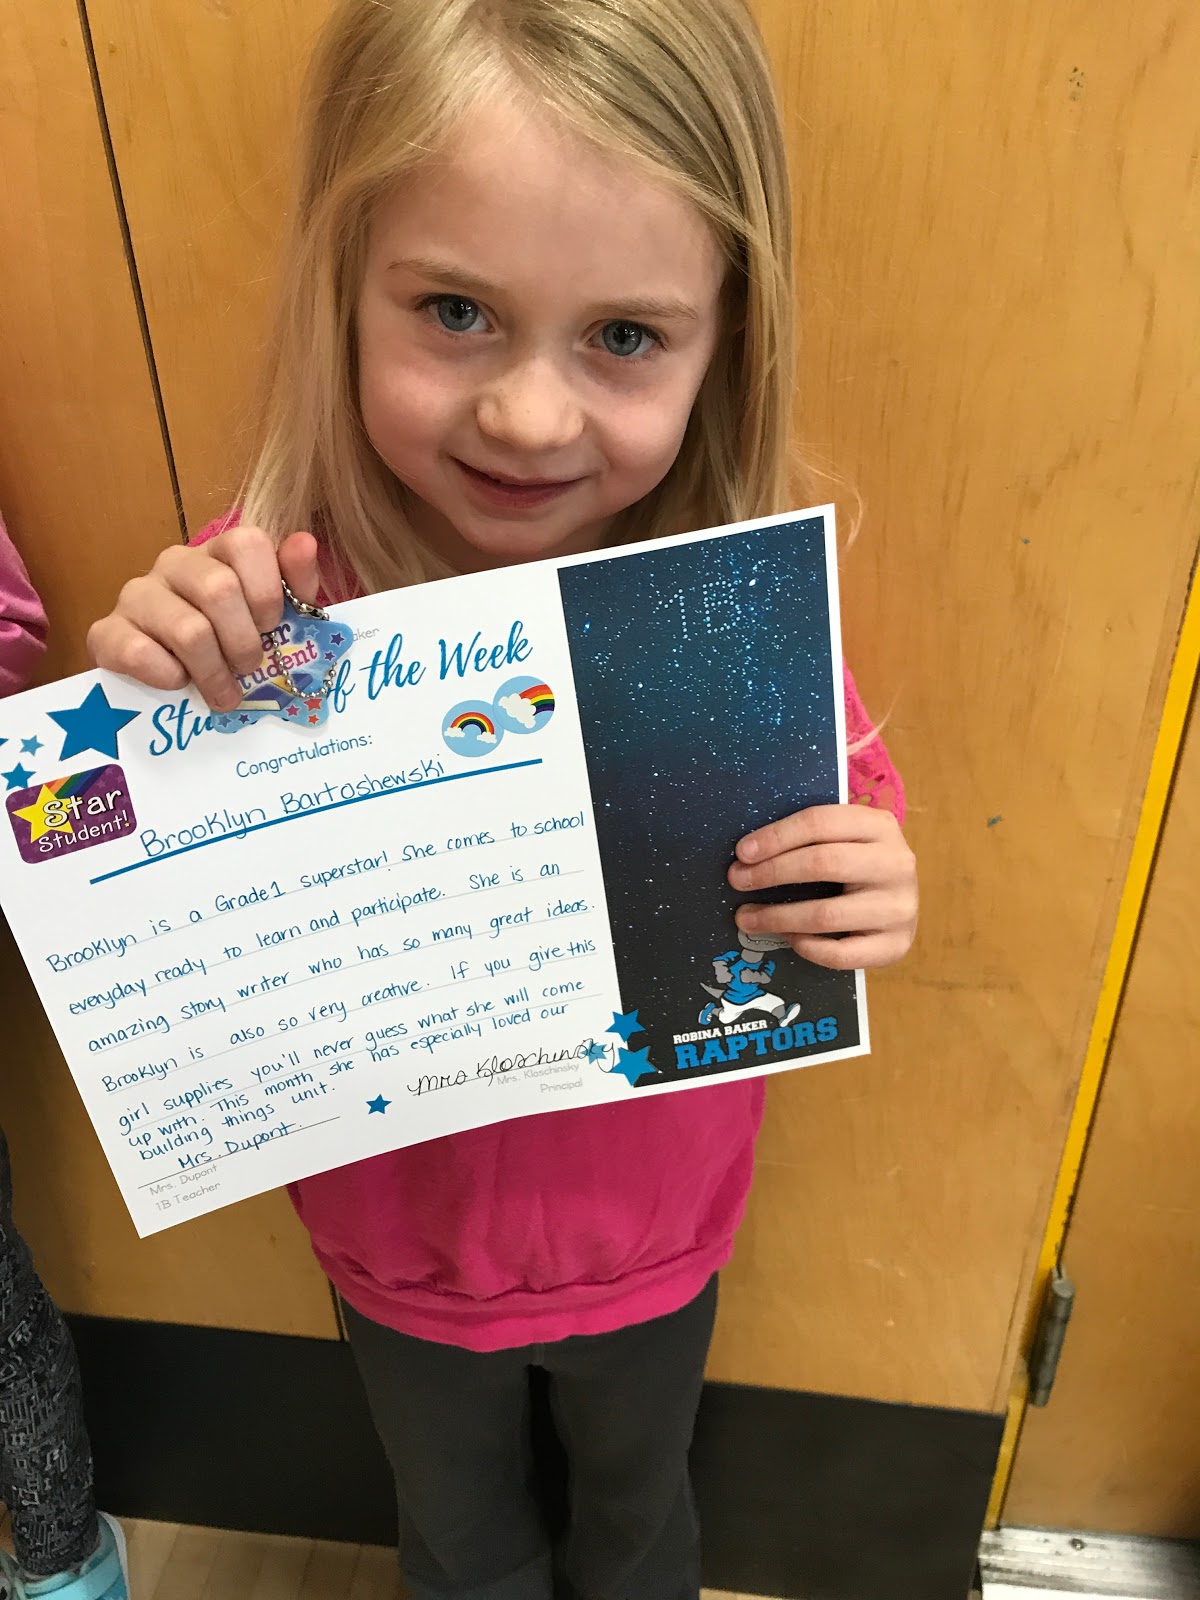 1B
Baker
Star Student
Student of the Week
Congratulations:
Star Student!
Brooklyn Bartoshewski
Brooklyn is a Grade 1 superstar! She comes to school
everyday ready to learn and participate. She is an
amazing story writer who has so many great ideas.
Brooklyn is also so very creative. If you give this
girl supplies you'll never guess what she will come
up with. This month she has especially loved our
building things unit.
Mrs. Dupont.
Mrs. Dupont
1B Teacher
Mrs Kloschinsky
Mrs. Kloschinsky
Principal
ROBINA BAKER
RAPTORS